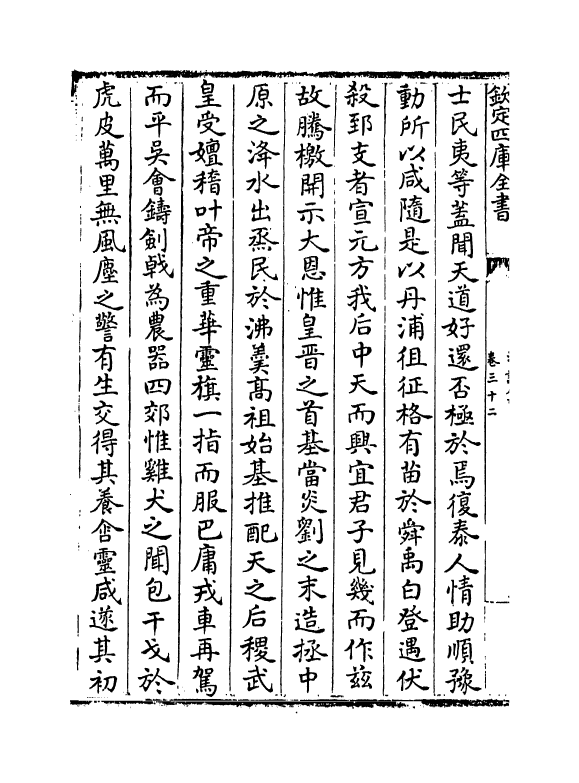 欽定四庫全書
卷三十二
士民夷等蓋聞天道好還否極於焉復泰人情助順豫
動所以咸隨是以丹浦徂征格有苗於舜禹白登遇伏
殺郅支者宣元方我后中天而興宜君子見幾而作兹
故騰檄開示大恩惟皇晋之首基當炎劉之末造拯中
原之洚水出烝民於沸羹髙祖始基推配天之后稷武
皇受嬗稽叶帝之重華靈旗一指而服巴庸戎車再駕
而平吳會鑄劍戟為農器四郊惟雞犬之聞包干戈於
虎皮萬里無風塵之警有生交得其養含靈咸遂其初